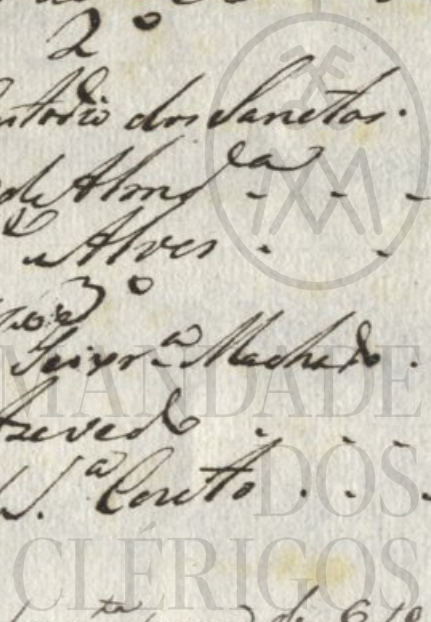 2º
dos Sanctos.
de Almdª - - -
Alves - -
3º
Teixrª Machado.
Azevedo - - -
Sª Couto - - -
de
MANDADE
DOS
CLÉRIGOS